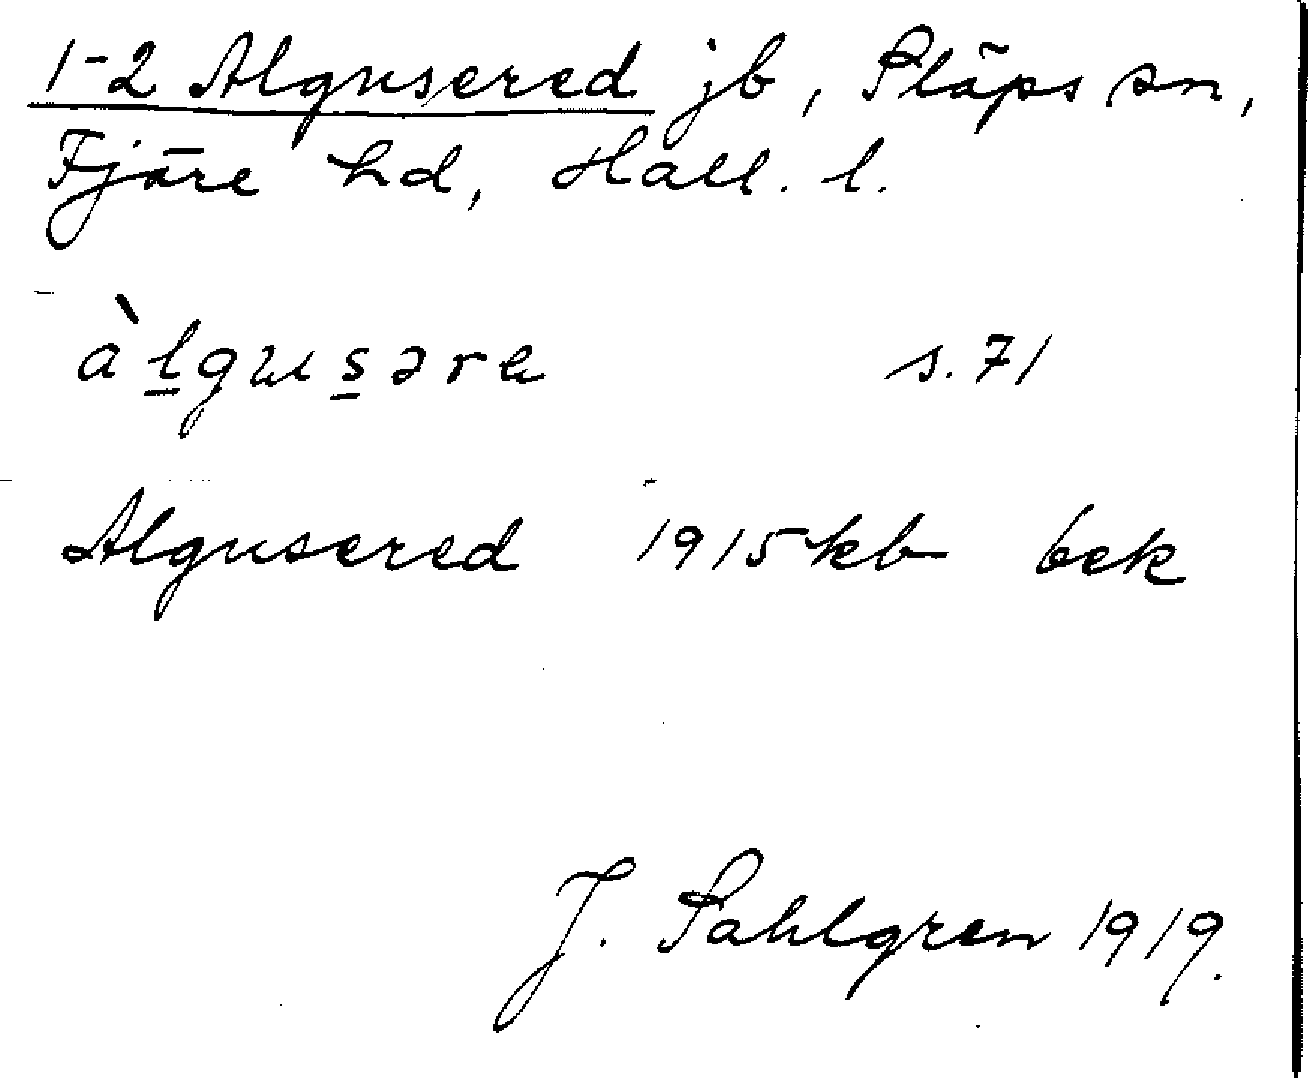 1-2 Algusered jb, Släps sn,
Fjäre hd, Hall. l.
àlgusəra s.71
Algusered 1915 kb bek
J. Sahlgren 1919.